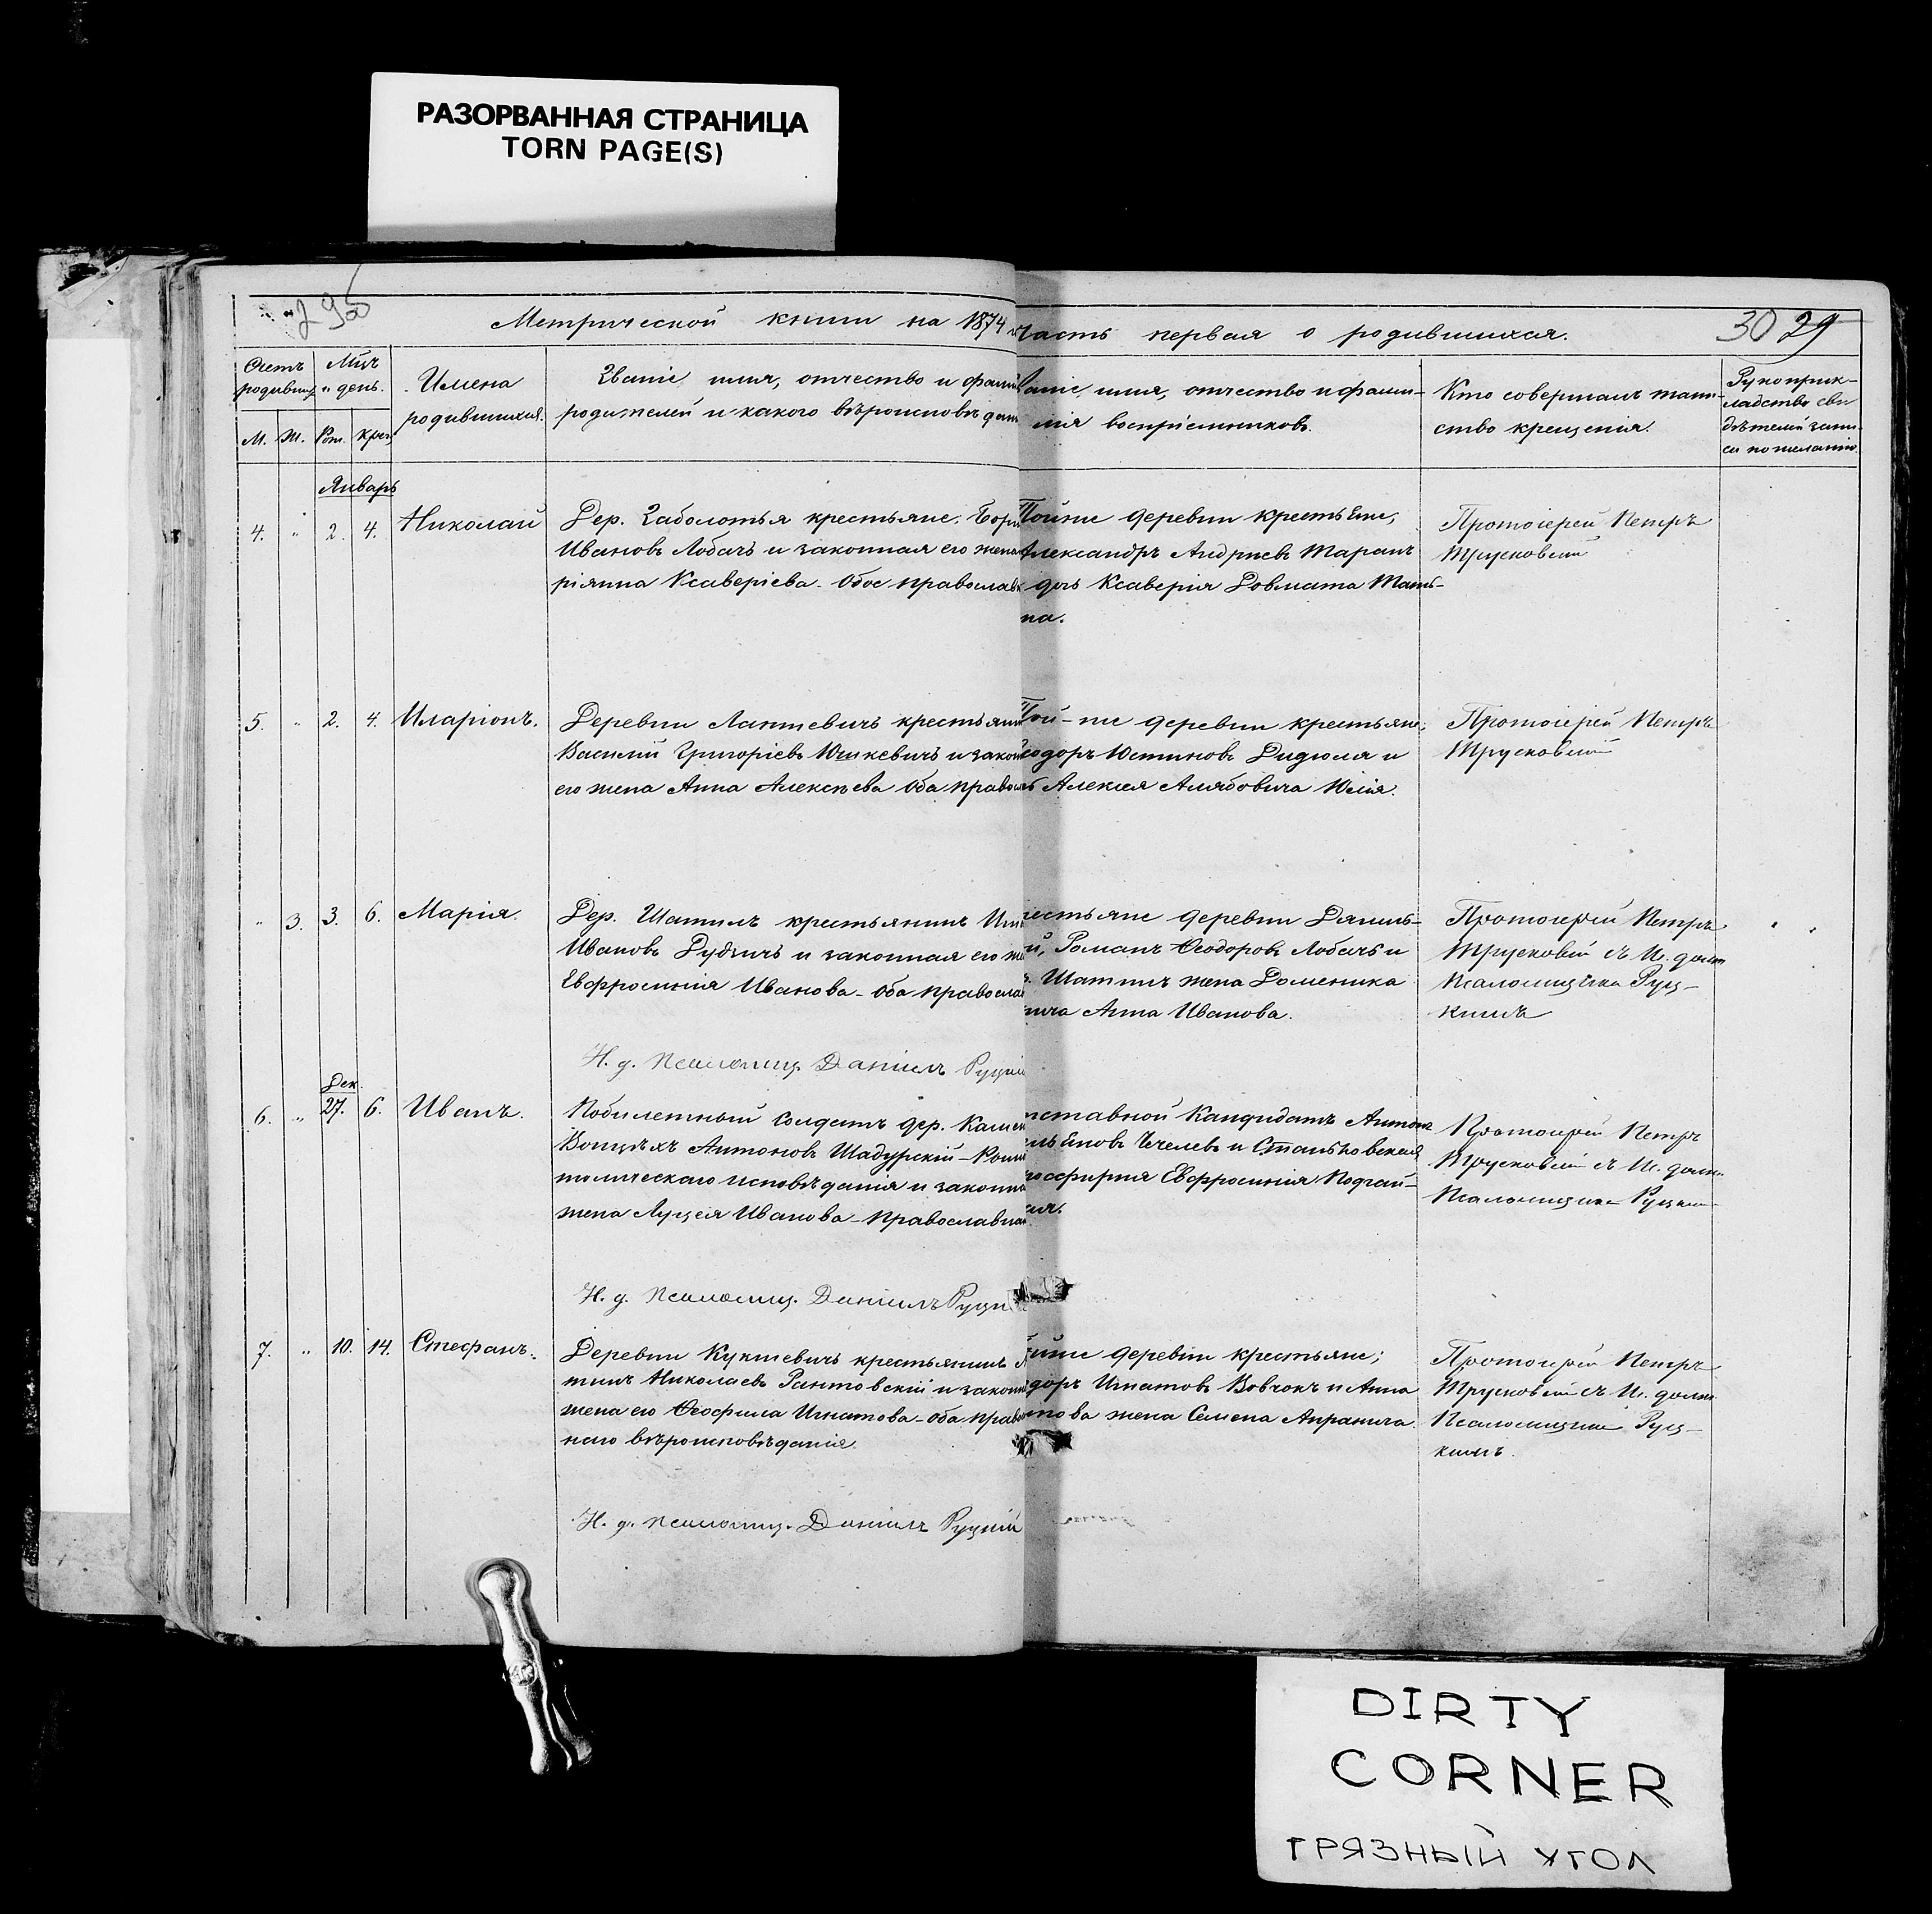 РАЗОРВАННАЯ СТРАНИЦА
TORN PAGE(S)
Метрической книги на 1874
Часть первая о родившихся.
30 29
Счетъ
родивших.
М. Ж.
Мцъ
и день.
Рож. Крещ.
Имена
родившихся.
Званіе, имя, отчество и фами
родителей и какого вѣроисповѣдан
аніе, имя, отчество и фами-
лія воспріемниковъ.
Кто совершалъ таин-
ство крещенія.
Рукоприк-
ладство сви
дѣтелей запи-
си по желанію
Январь
4. " 2. 4. Николай
Дер. Заболотья крестьяне:
Ивановъ Лобачъ и законная его жена
ріянна Ксаверіева. Обое православ
Тойже деревни крестьяне,
Александръ Андреевъ Таранъ
дочь Ксаверія Довмата Тать-
на.
Протоіерей Петръ
Трусковскій
5. " 2. 4. Иларіонъ.
Деревни Лаптевичъ крестьяни
Василій Григоріевъ Юшкевичъ и закон
его жена Анна Алексѣева Оба правос
Той-же деревни крестьяне;
еодоръ Юстиновъ Дидюля и
Алексея Юлія.
Протоіерей Петръ
Трусковскій
" 3. 3. 6. Марія.
Дер. Шатилъ крестьянинъ
Ивановъ Рудзичъ и законная его ж
Евфросинія Иванова - Оба правосла
рестьяне деревни
Романъ Ѳеодоровъ Лобачъ и
жена Доменика
Анна Иванова.
Протоіерей Петръ
Трусковскій съ И. долж
Псаломщика Руц-
кимъ
И. д. псаломщ. Даніилъ Руцкій
Дек.
6. " 27. 6. Иванъ.
солдатъ дер. Камен
Войцѣхъ Антоновъ Шадурскій - Рим
толическаго исповѣданія и законн
жена Луцея Иванова - православна
ставной Кандидатъ Антонъ
Евфросинія
Протоіерей Петръ
Трусковскій съ И. долж.
Псаломщика Руцким
И. д. псаломщ. Даніилъ Руцк
7. " 10. 14. Стефанъ.
Деревни Куктевичъ крестьянинъ
Николаевъ и закон
жена его Ѳеофила Игнатова - оба прав
наго вѣроисповѣданія.
деревни крестьяне;
доръ Игнатовъ Вовчокъ и Анна
жена Семена
Протоіерей Петръ
Трусковскій съ И. долж
Псаломщика Руц-
кимъ.
И. д. псаломщ. Даніилъ Руцкій
DIRTY
CORNER
ГРЯЗНЫЙ УГОЛ